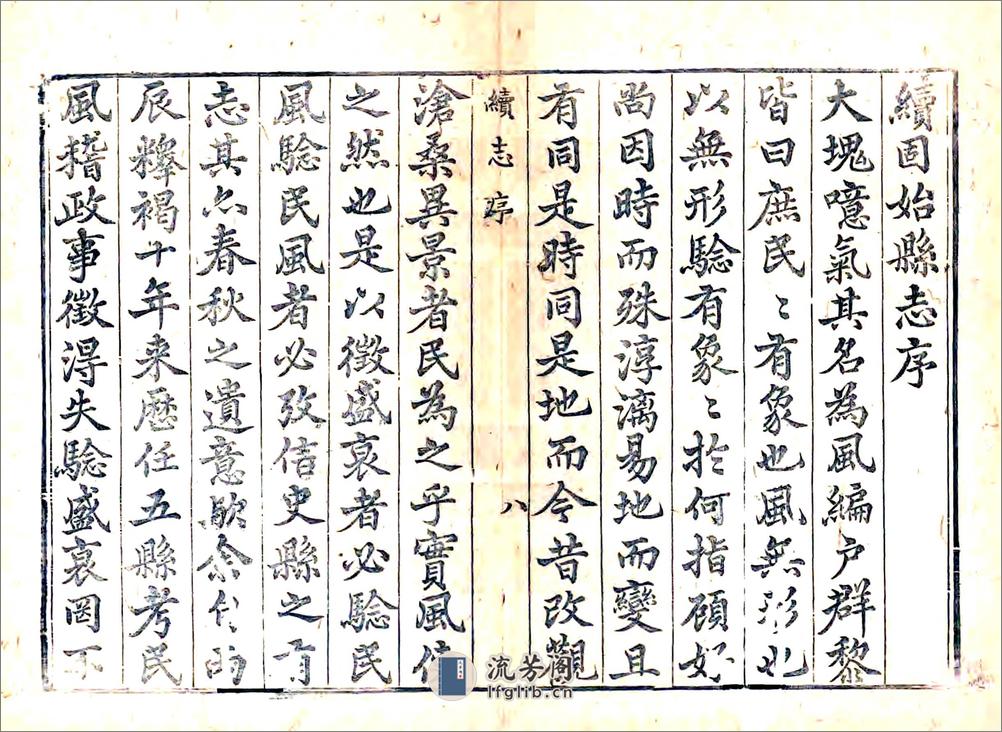 續固始縣志序
大塊噫氣其名為風編户群黎
皆曰庶民〻有象也風無形也
以無形驗有象〻於何指顧好
尚因時而殊淳漓易地而變且
有同是時同是地而今昔改觀
續志序
八
滄桑異景者民為之乎實風使
之然也是以徵盛衰者必驗民
風驗民風者必攷信史縣之有
志其亦春秋之遺意歟余
辰釋褐十年来歷任五縣考民
風稽政事徵得失驗盛衰罔不
流芳阁
lfglib.cn